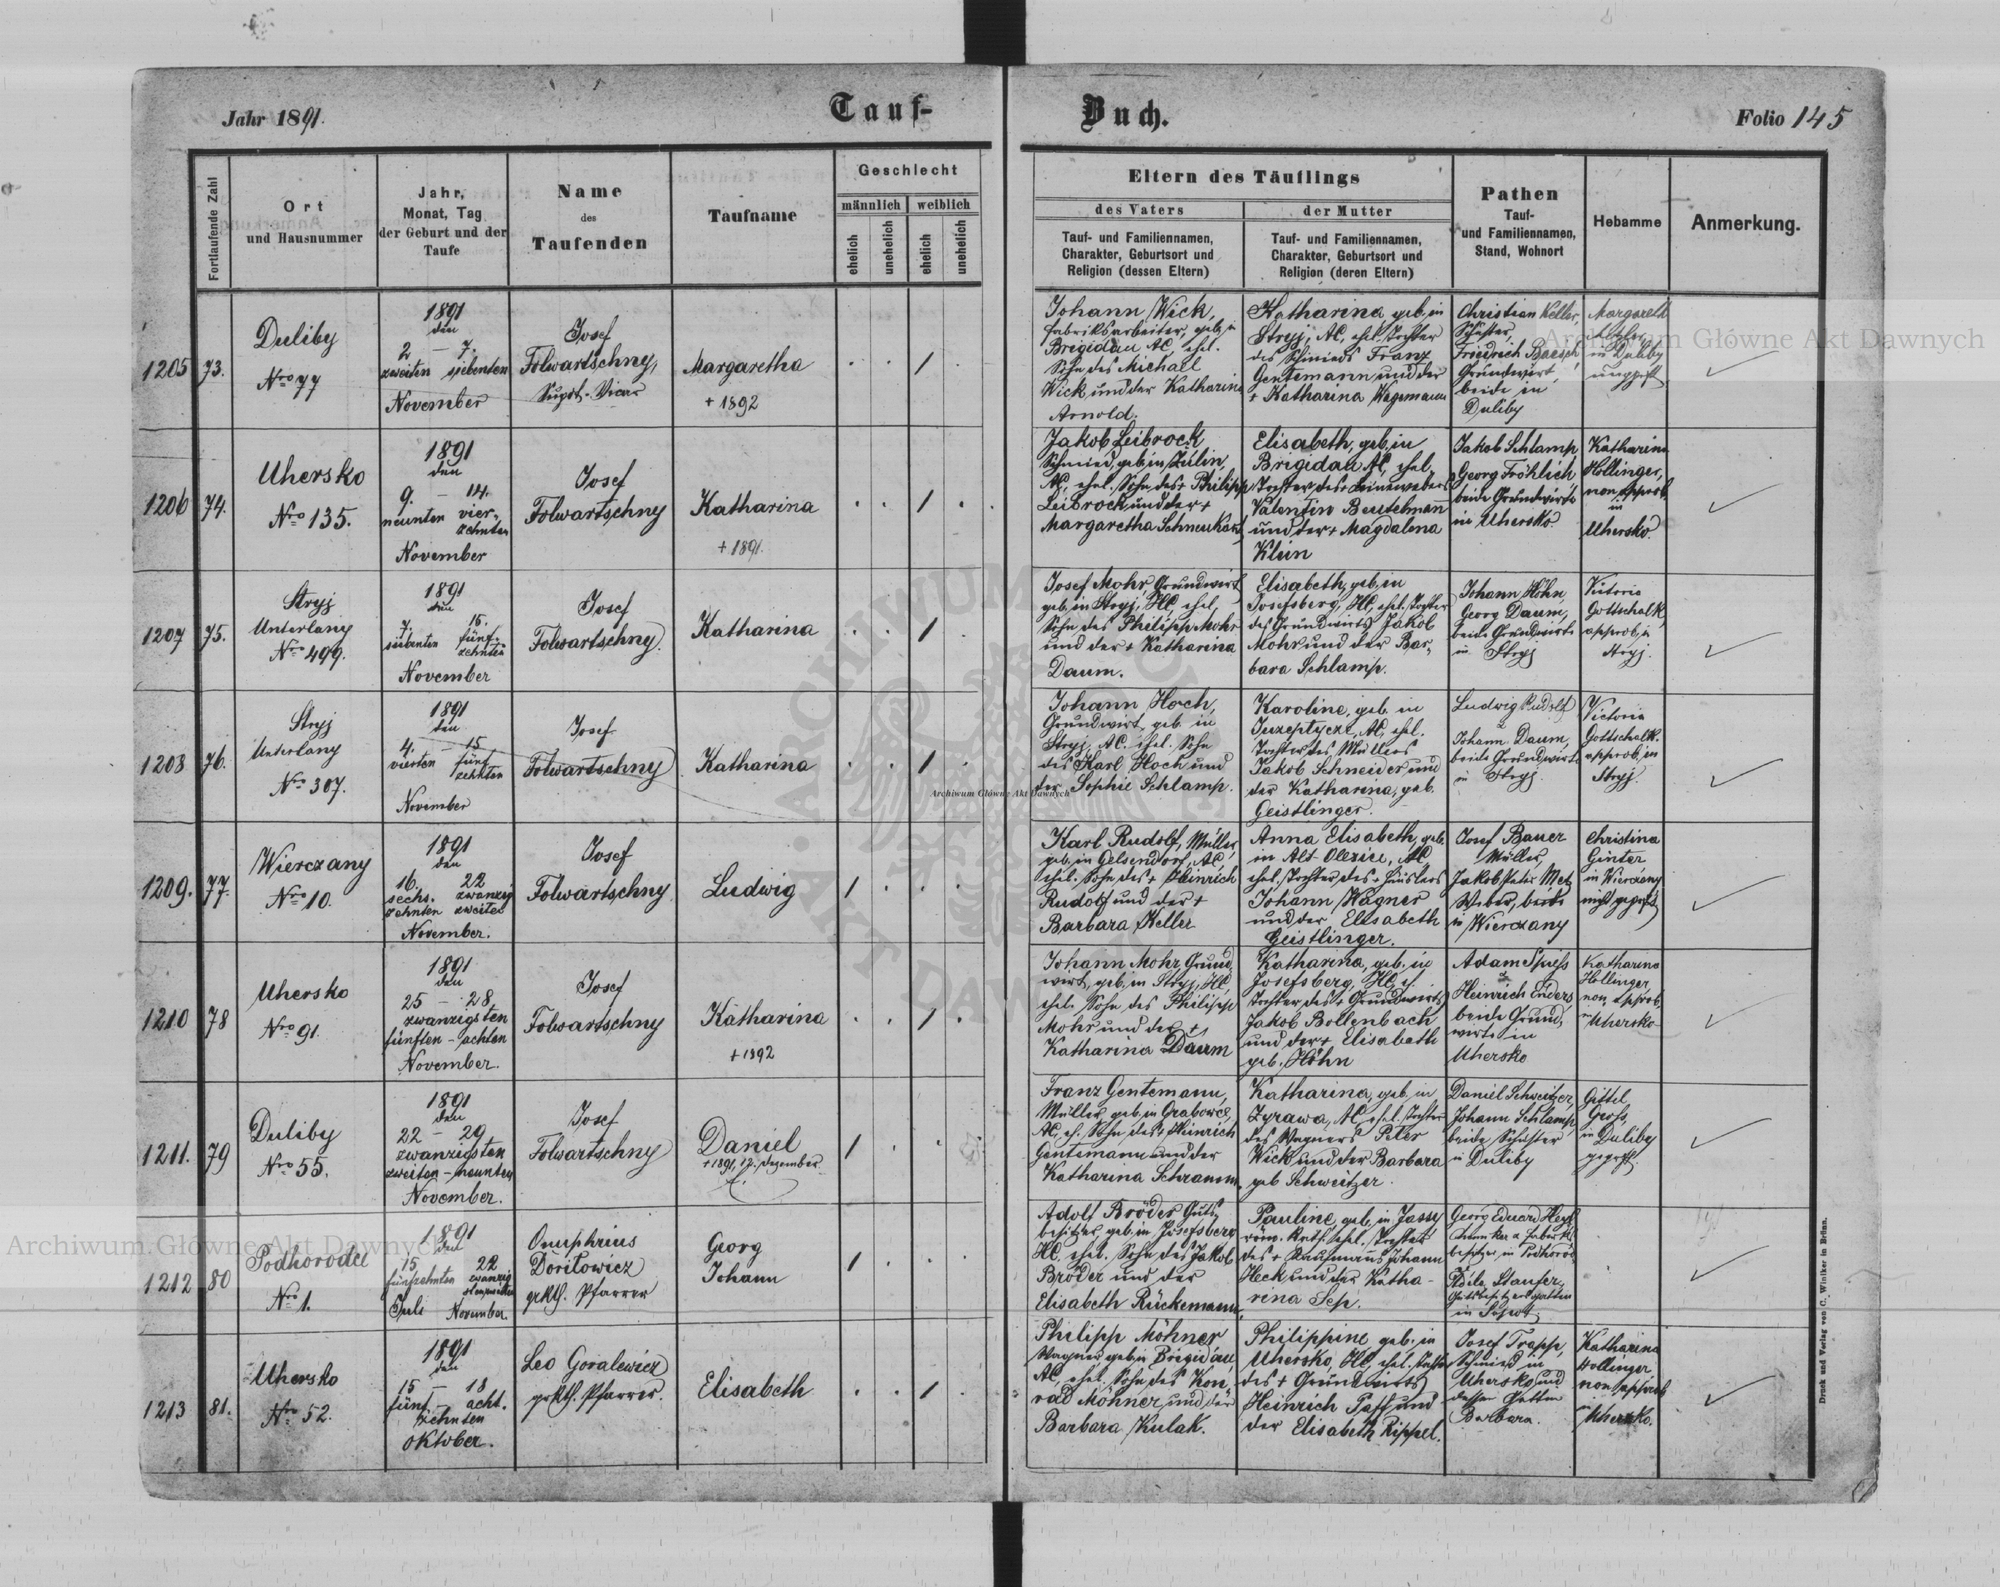 Jahr 1891.
Tauf-
Buch.
Folio 145
Fortlaufende Zahl
Ort
und Hausnummer
Jahr,
Monat, Tag
der Geburt und der
Taufe
Name
des
Taufenden
Taufname
Geschlecht
männlich
weiblich
ehelich
unehelich
ehelich
unehelich
Eltern des Täuflings
des Vaters
der Mutter
Tauf- und Familiennamen,
Charakter, Geburtsort und
Religion (dessen Eltern)
Tauf- und Familiennamen,
Charakter, Geburtsort und
Religion (deren Eltern)
Pathen
Tauf-
und Familiennamen,
Stand, Wohnort
Hebamme
Anmerkung.
1205
73.
Duliby
Nro 77
1891
den
2 — 7.
zweiten siebenten
November
Josef
Folwartschny,
Supdt. Vicar
Margaretha
+ 1892
1
Johann Wick,
Fabriksarbeiter, geb. in
Brigidau AC, ehel.
Sohn des Michael
Wick und der Katharina
Arnold.
Katharina geb. in
Stryj, AC, ehel. Tochter
des Schmieds Franz
Gentemann und der
+ Katharina Wagemann
Christian Keller,
Schuster,
Friedrich Baesch
Grundwirt,
beide in
Duliby
Margareth
in Duliby
ungeprft.
1206
74.
Uhersko
Nro 135.
1891
den
9. — 14.
neunten vier-
zehnten
November
Josef
Folwartschny
Katharina
+ 1891.
1
Jakob Leibrock,
Schmied, geb. in Zulin,
AC, ehel. Sohn des + Philipp
Leibrock und der +
Margaretha Schneukart
Elisabeth, geb. in
Brigidau AC, ehel.
Tochter des + Leinewebers
Valentin Beutelmann
und der + Magdalena
Klein
Jakob Schlamp,
Georg Fröhlich,
beide Grundwirte
in Uhersko
Katharina
Hollinger,
non approb.
in
Uhersko.
1207
75.
Stryj
Unterlany
Nro 499.
1891
den
7. 15.
siebenten fünf-
zehnten
November
Josef
Folwartschny.
Katharina
1
Josef Mohr, Grundwirt
geb. in Stryj, HC, ehel.
Sohn des Philipp Mohr
und der + Katharina
Daum.
Elisabeth, geb. in
Josefsberg, HC, ehel. Tochter
des Grundwirts Jakob
Mohr und der Bar-
bara Schlamp.
Johann Höhn,
Georg Daum,
beide Grundwirte
in Stryj
Victoria
Gottschalk,
approb. in
Stryj.
1208
76.
Stryj
Unterlany
Nro 307.
1891
den
4. — 15
vierten fünf
zehnten
November
Josef
Folwartschny
Katharina
1
Johann Hoch,
Grundwirt, geb. in
Stryj, AC. ehel. Sohn
des Karl Hoch und
der Sophie Schlamp.
Karoline, geb. in
Juzeptycze, AC, ehel.
Tochter des Müllers
Jakob Schneider und
der Katharina, geb.
Geistlinger.
Ludwig Rudolf
Johann Daum,
beide Grundwirte
in Stryj.
Victoria
Gottschalk.
approb. in
Stryj.
1209.
77.
Wierczany
Nro 10.
1891
den
16. 22
sechs- zwanzig
zehnten zweiten
November.
Josef
Folwartschny
Ludwig
1
Karl Rudolf, Müller,
geb. in Gelsendorf, AC,
ehel. Sohn des + Heinrich
Rudolf und der +
Barbara Keller
Anna Elisabeth, geb.
in Alt-Olexice, AC,
ehel. Tochter des + Häuslers
Johann Wagner
und der Elisabeth
Geistlinger.
Josef Bauer
Müller,
Jakob Peter Metz
Weber, beide
in Wierczany
Christina
Ginter
in Wierczany
nicht geprft.
1210
78
Uhersko
Nro 91.
1891
den
25 — 28,
zwanzigsten
fünften - achten
November.
Josef
Folwartschny
Katharina
+ 1892
1
Johann Mohr, Grund,
wirt, geb. in Stryj, HC,
ehel. Sohn des Philipp
Mohr und der +
Katharina Daum
Katharina, geb. in
Josefsberg, HC, e.
Tochter des + Grundwirts
Jakob Bollenbach
und der + Elisabeth
geb. Höhn
Adam Spiess
Heinrich Enders
beide Grund,
wirte in
Uhersko
Katharina
Hollinger,
non approb.
in Uhersko
1211.
79
Duliby
Nro 55.
1891
den
22 — 29
zwanzigsten
zweiten - neunten
November.
Josef
Folwartschny
Daniel
+ 1891, 17. Dezember
1
Franz Gentemann,
Müller, geb. in Grabowce,
AC, eh. Sohn des + Heinrich
Gentemann und der
Katharina Schramm.
Katharina, geb. in
Zyrawa, AC, ehel. Tochter
des Wagners Peter
Wick und der Barbara
geb. Schweitzer.
Daniel Schweitzer,
Johann Schlamp,
beide Schuster
in Duliby
Gittel
Gross,
in Duliby
geprft.
1212
80
Podhorodce
Nro 1.
1891
den
15 22
fünfzehnten zwanzig
Juli November.
Onuphrius
Dorilowicz
grkth. Pfarrer
Georg
Johann
1
Adolf Bröder, Guts,
besitzer, geb. in Josefsberg
HC, ehel. Sohn des Jakob
Bröder und der
Elisabeth Rückemann.
Pauline, geb. in Jassy
röm. Kath. ehel. Tochter
des + Kaufmanns Johann
Heck und der Katha-
rina Sep.
Georg Eduard Heyl
besitzer in Podhorod-
Adele Staufer,
Gutsbesitzersgattin
in Sopot
1213
81.
Uhersko
Nro 52.
1891
den
15 — 18
fünf - acht.
zehnten
Oktober.
Leo Goralewicz
grkth. Pfarrer.
Elisabeth
1
Philipp Möhner
Wagner geb. in Brigidau,
AC, ehel. Sohn des Kon,
rad Möhner, und der
Barbara Kulak.
Philippine geb. in
Uhersko, HC, ehel. Tochter
des + Grundwirts
Heinrich Paff und
der Elisabeth Rippel.
Josef Trapp,
Schmied in
Uhersko, und
dessen Gattin
Barbara.
Katharina
Hollinger
non approb
in Uhersko.
Druck und Verlag von C. Winiker in Brünn.
Archiwum Główne Akt Dawnych
Archiwum Główne Akt Dawnych
Archiwum Główne Akt Dawnych